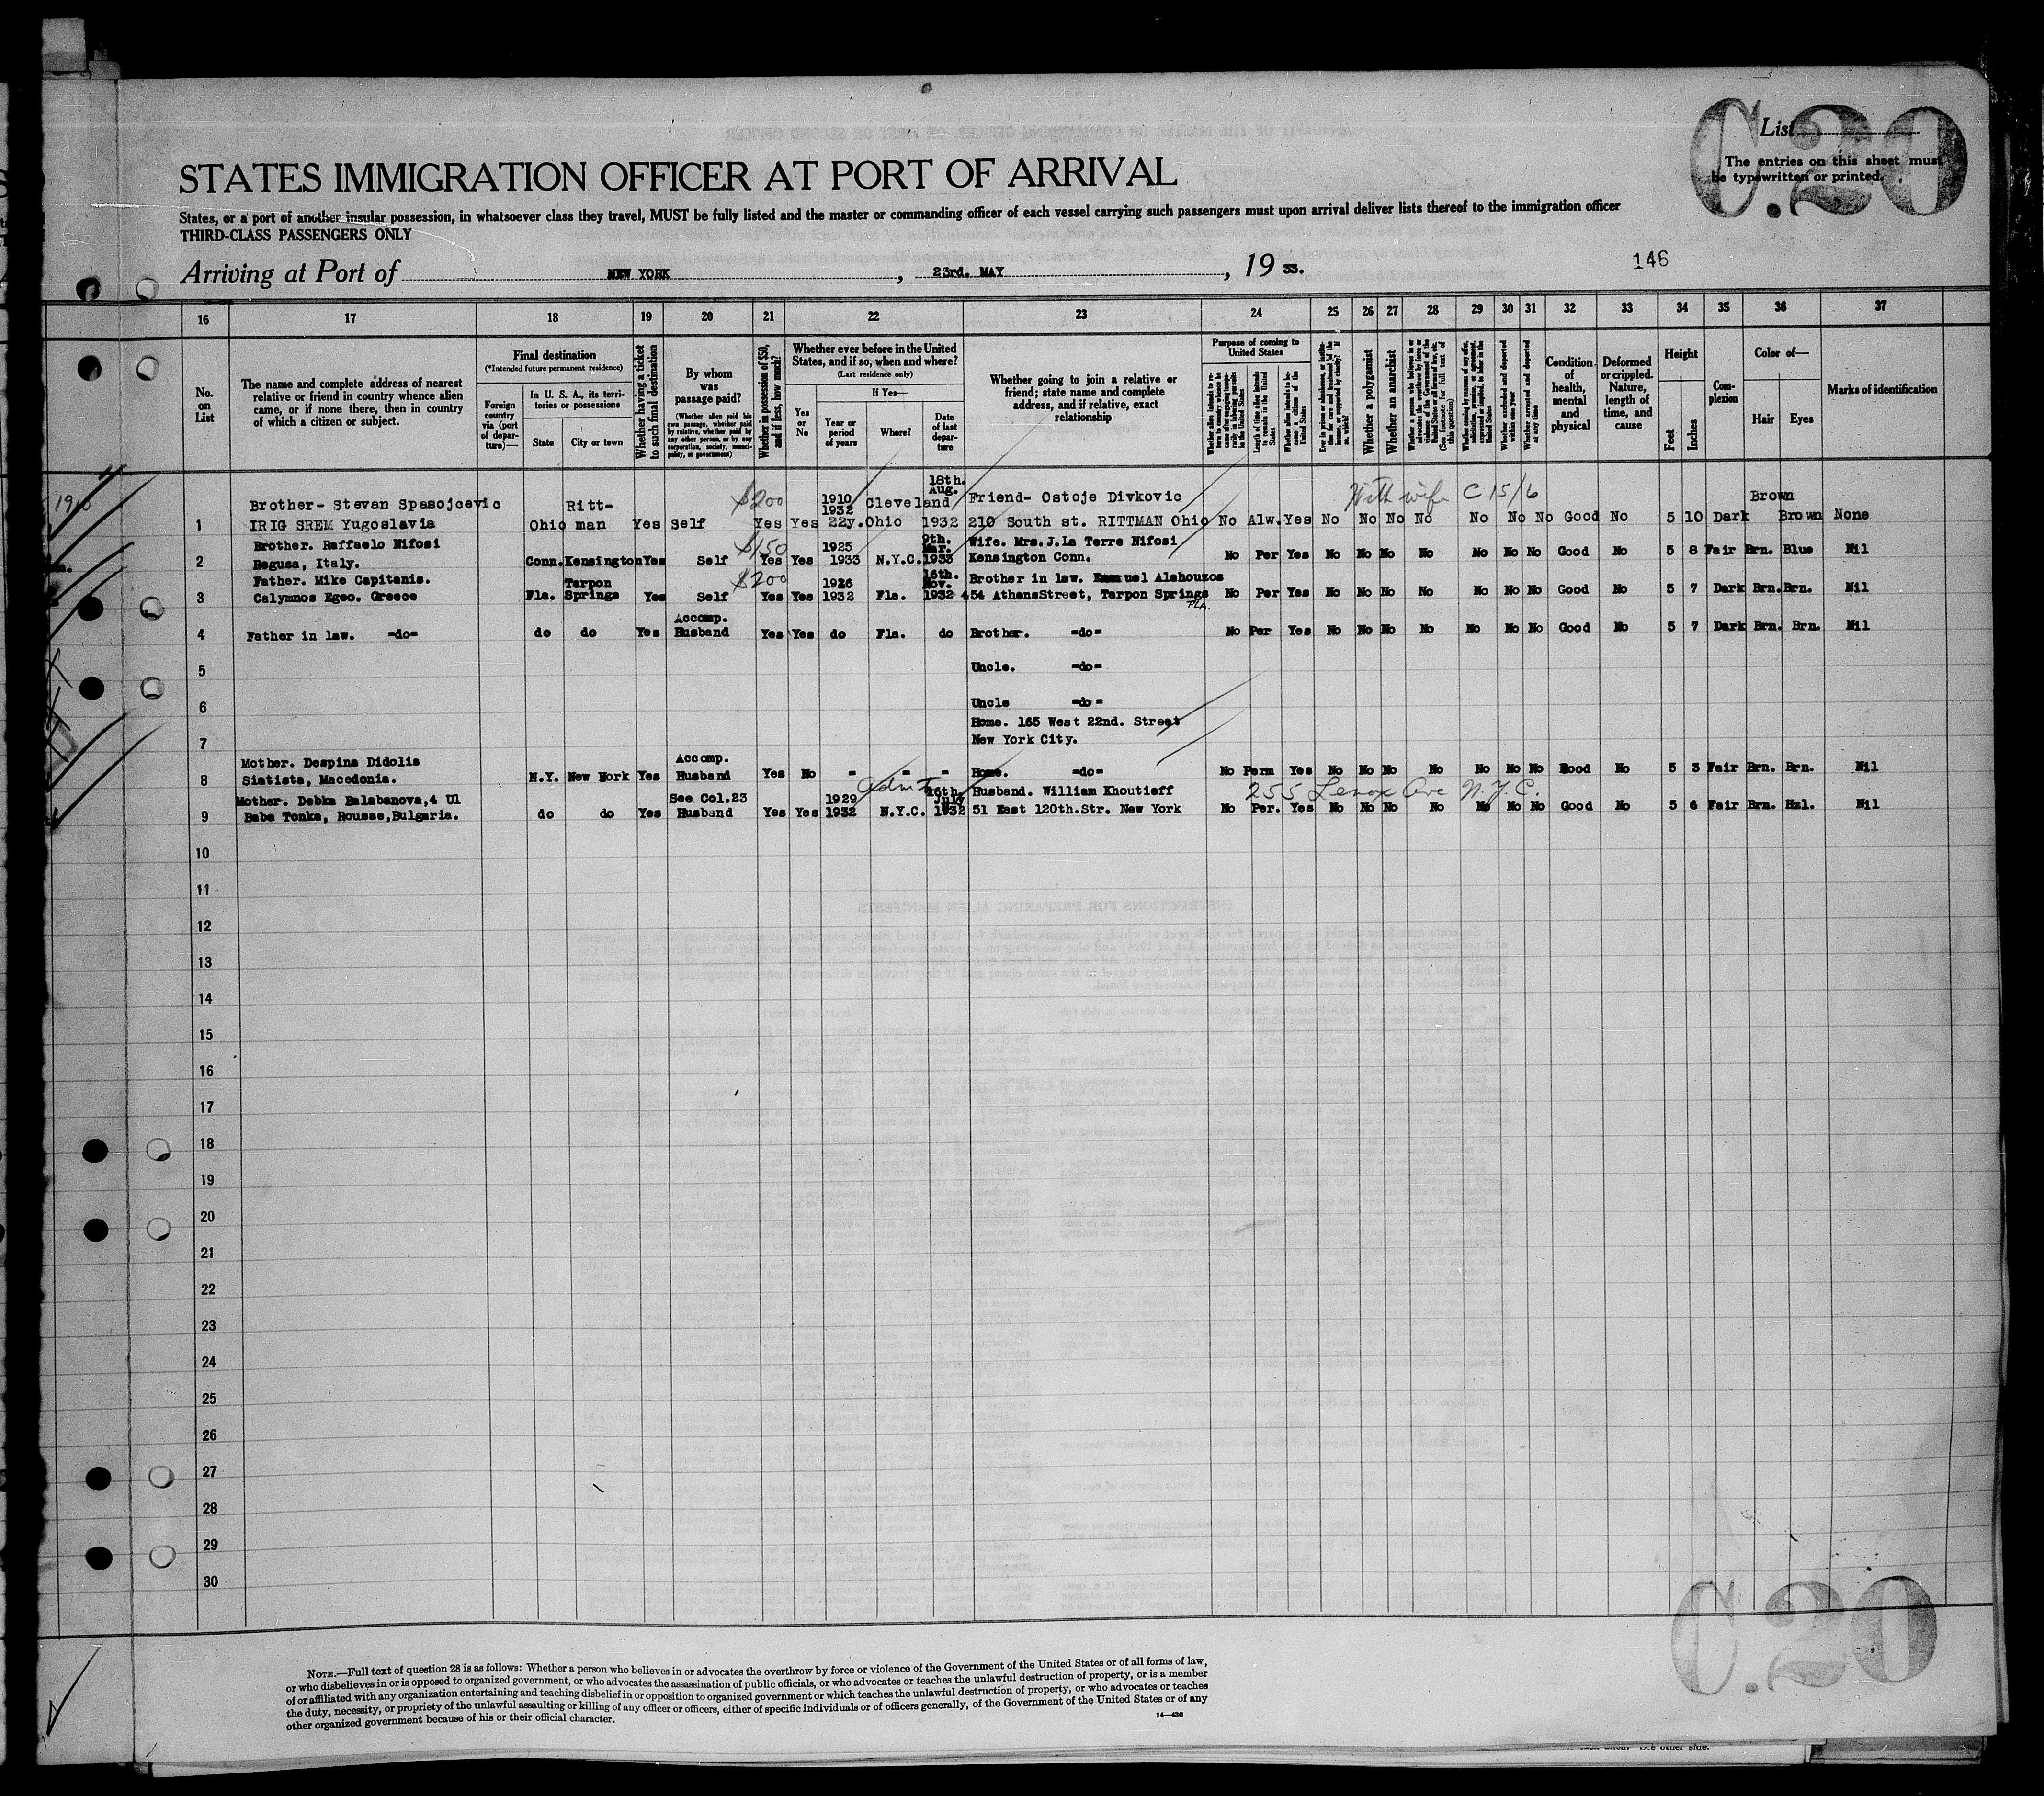 C.20
List
The entries on this sheet must
be typewritten or printed.
STATES IMMIGRATION OFFICER AT PORT OF ARRIVAL
States, or a port of another insular possession, in whatsoever class they travel, MUST be fully listed and the master or commanding officer of each vessel carrying such passengers must upon arrival deliver lists thereof to the immigration officer
THIRD-CLASS PASSENGERS ONLY
Arriving at Port of NEW YORK, 23rd. MAY, 19 33.
146
16 17 18 19 20 21 22 23 24 25 26 27 28 29 30 31 32 33 34 35 36 37
No. on List
The name and complete address of nearest relative or friend in country whence alien came, or if none there, then in country of which a citizen or subject.
Final destination
(*Intended future permanent residence)
Foreign country via (port of departure)—
In U. S. A., its territories or possessions
State
City or town
Whether having a ticket to such final destination
By whom was passage paid?
(Whether alien paid his own passage, whether paid by relative, whether paid by any other person, or by any corporation, society, municipality, or government)
Whether in possession of $50, and if less, how much?
Whether ever before in the United States, and if so, when and where?
(Last residence only)
Yes or No
If Yes—
Year or period of years
Where?
Date of last departure
Whether going to join a relative or friend; state name and complete address, and if relative, exact relationship
Purpose of coming to United States
Whether alien intends to become a citizen of the United States
Whether a polygamist
Whether an anarchist
Whether excluded and deported within one year
Whether arrested and deported at any time
Condition of health, mental and physical
Deformed or crippled. Nature, length of time, and cause
Height
Feet
Inches
Complexion
Color of—
Hair
Eyes
Marks of identification
1910
$200 18th. Aug. With wife C 15/6
Brother- Stevan Spasojcevic Ritt- 1910 1932 Cleveland Friend- Ostoje Divkovic Brown
1 IRIG SREM Yugoslavia Ohio man Yes Self Yes Yes 22y. Ohio 1932 210 South st. RITTMAN Ohio No Alw. Yes No No No No No No No Good No 5 10 Dark Brown None
Brother. Raffaelo Nifosi $150 1925 9th. Mar. Wife. Mrs. J.La Terre Nifosi
2 Ragusa, Italy. Conn. Kensington Yes Self Yes Yes 1933 N.Y.C. 1933 Kensington Conn. No Per Yes No No No No No No No Good No 5 8 Fair Brn. Blue Nil
Father. Mike Capitanis. Tarpon $200 1926 16th. Nov. Brother in law. Emanuel Alahouzos
3 Calymnos Egeo. Greece Fla. Springs Yes Self Yes Yes 1932 Fla. 1932 454 AthensStreet, Tarpon Springs FLA. No Per Yes No No No No No No No Good No 5 7 Dark Brn. Brn. Nil
Accomp.
4 Father in law. =do= do do Yes Husband Yes Yes do Fla. do Brother. =do= No Per Yes No No No No No No No Good No 5 7 Dark Brn. Brn. Nil
5 Uncle. =do=
6 Uncle =do=
Home. 165 West 22nd. Street
7 New York City.
Mother. Despina Didolis Accomp.
8 Siatista, Macedonia. N.Y. New York Yes Husband Yes No = = = Home. =do= No Perm Yes No No No No No No No Good No 5 3 Fair Brn. Brn. Nil
Mother. Debka Balabanova,4 Ul See Col.23 1929 16th. July Husband. William Khoutieff 255 Lenox Ave N.Y.C.
9 Baba Tonka, Rousse,Bulgaria. do do Yes Husband Yes Yes 1932 N.Y.C. 1932 51 East 120th.Str. New York No Per. Yes No No No No No No No Good No 5 6 Fair Brn. Hzl. Nil
10
11
12
13
14
15
16
17
18
19
20
21
22
23
24
25
26
27
28
29
30
C.20
NOTE.—Full text of question 28 is as follows: Whether a person who believes in or advocates the overthrow by force or violence of the Government of the United States or of all forms of law,
or who disbelieves in or is opposed to organized government, or who advocates the assassination of public officials, or who advocates or teaches the unlawful destruction of property, or is a member
of or affiliated with any organization entertaining and teaching disbelief in or opposition to organized government or which teaches the unlawful destruction of property, or who advocates or teaches
the duty, necessity, or propriety of the unlawful assaulting or killing of any officer or officers, either of specific individuals or of officers generally, of the Government of the United States or of any
other organized government because of his or their official character.
14—430